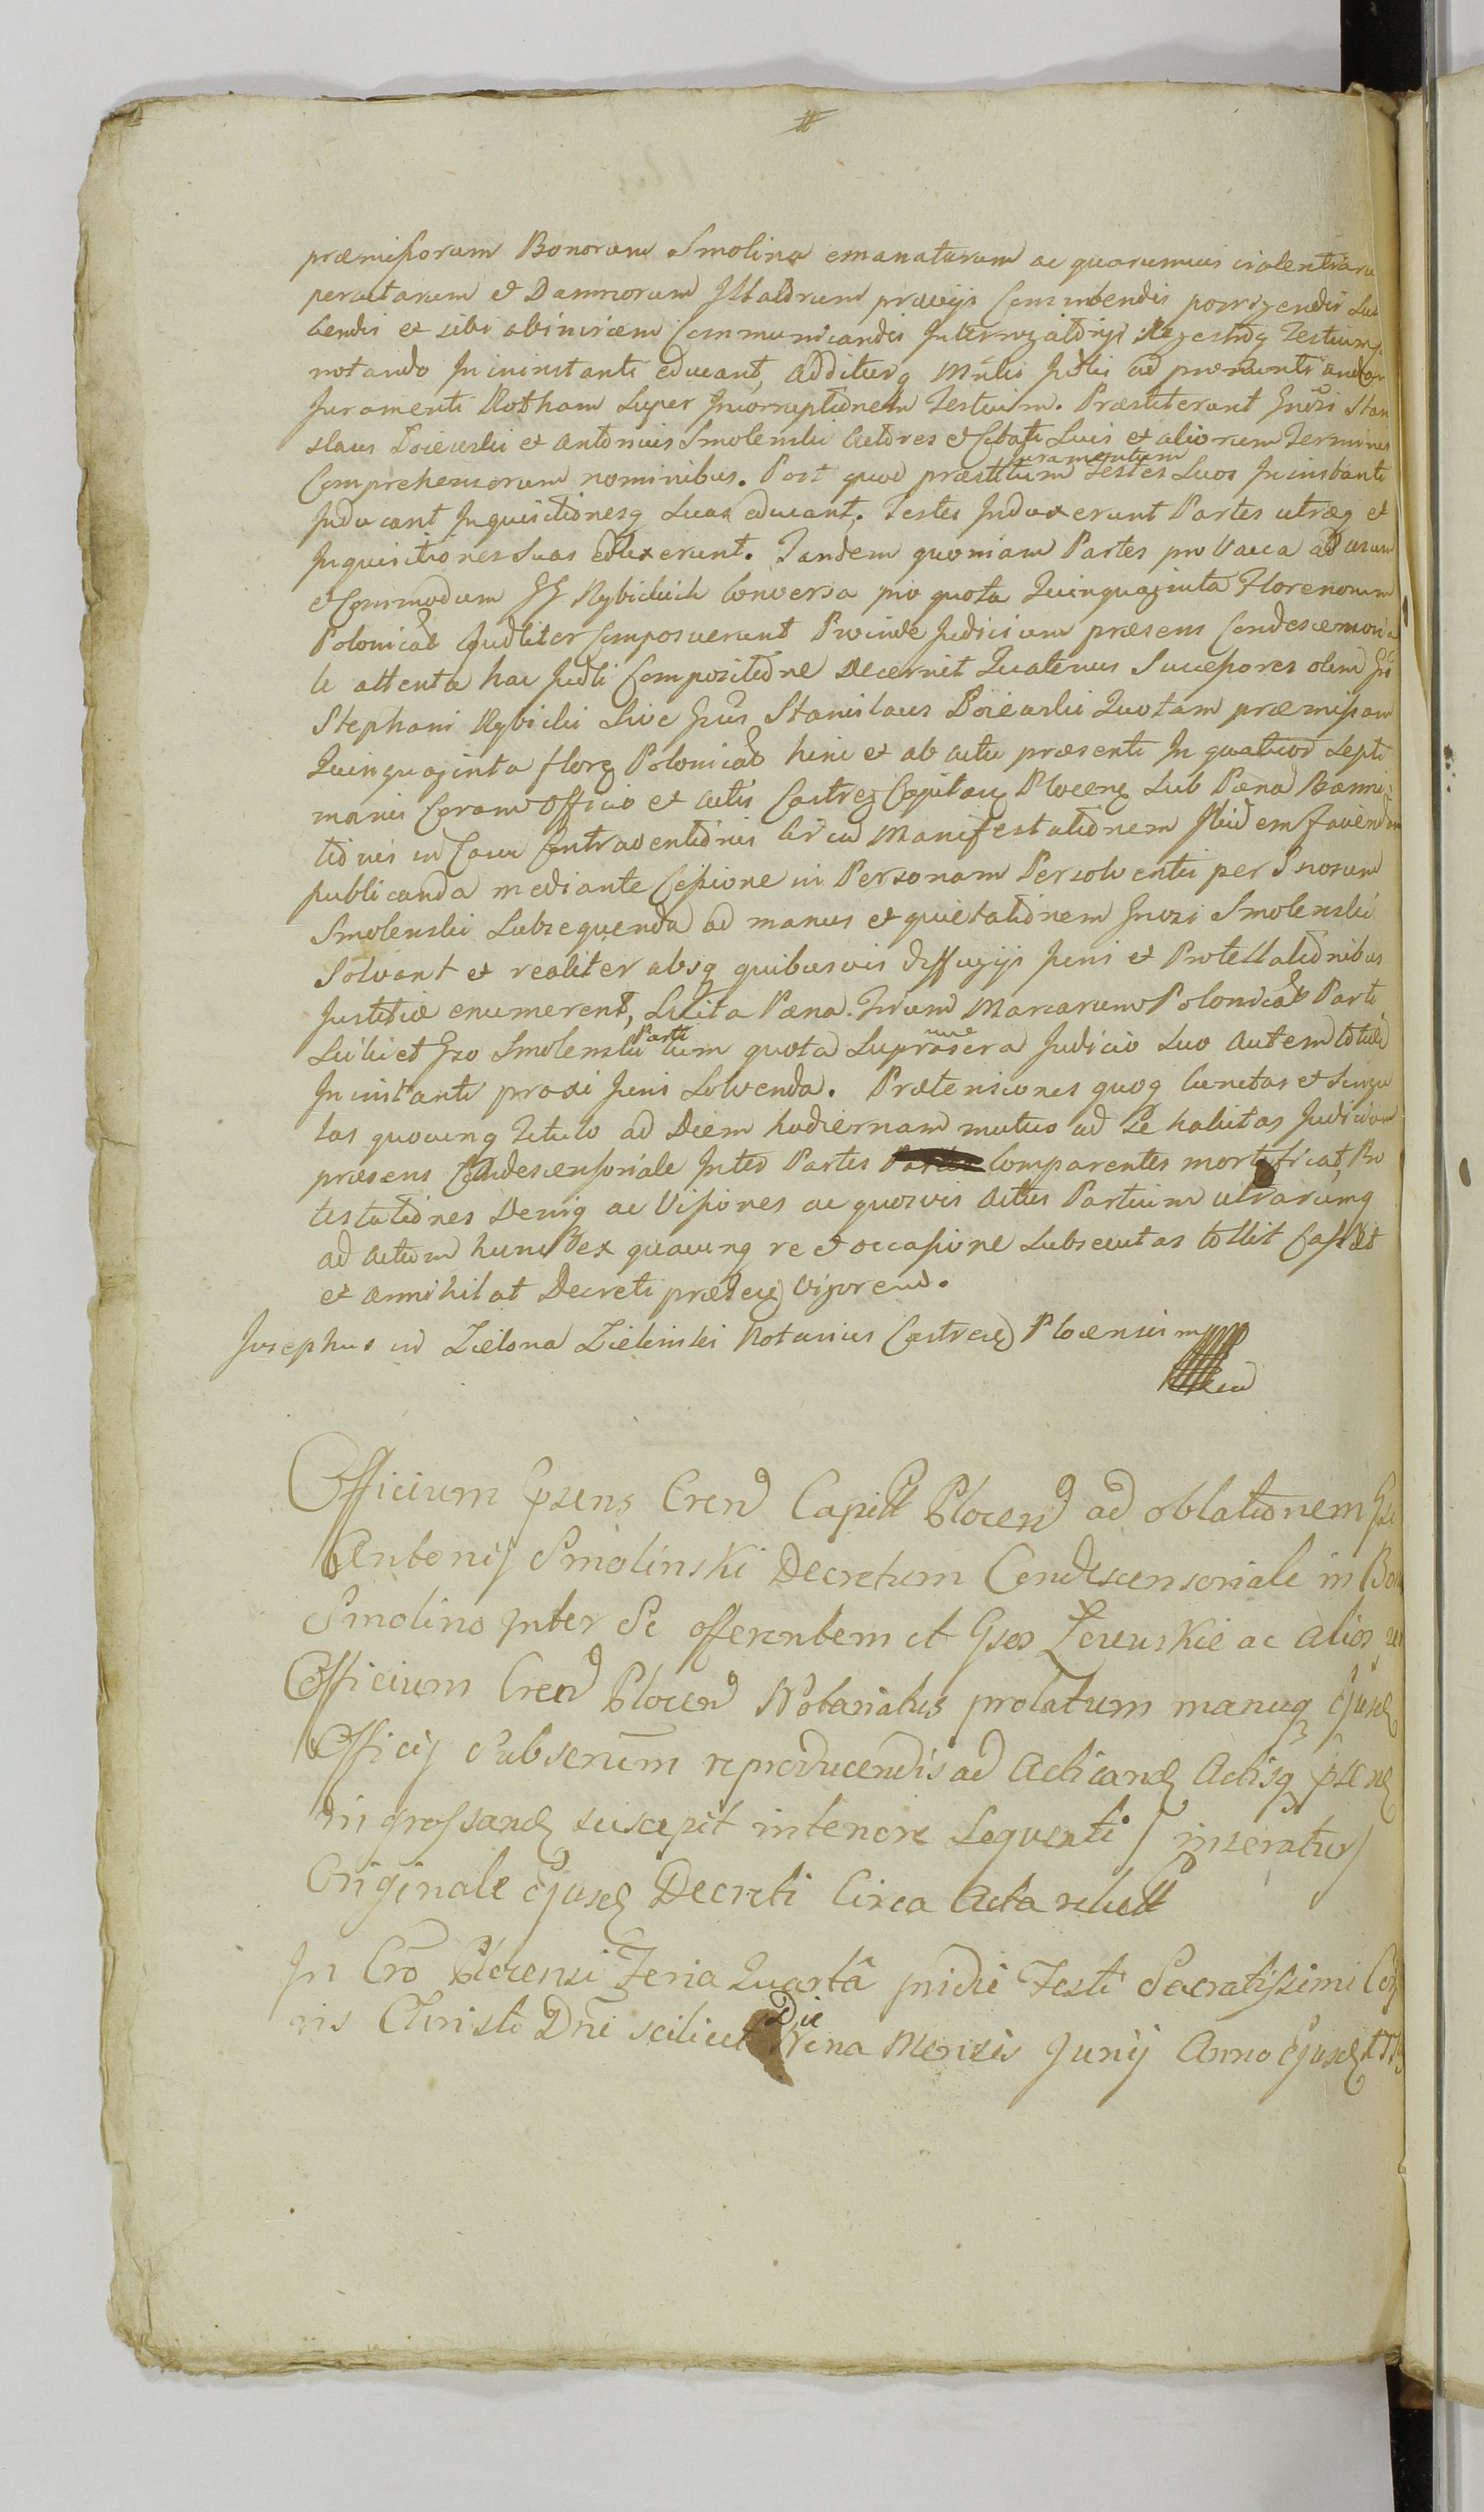 præmissorum Bonorum Smolino emanatarum ac quarumvis violentiaru
peractarum et Damnorum Illatorum prævijs Conscribendis porrigendis Sus
cendis et sibi abinvicem Communicandis Interrogatorijs Regestroq Testium
notando In instanti educant, additurq Mnlis Jtlis ad pronuntiandam
Juramenti Rotham Super Incorruptionem Testium. Præstiterunt Gnosi Stan
slaus Poiewski et Antonius Smolenski Actores et Citati Suis et aliorum Terminis
Comprehensorum nominibus. Post quod præstitum Juramentum Testes Suos In instanti
Inducant Inquisitionesq Suas educant. Testes Induxerunt Partes utræq et
Inquisitiones Suas eduxerunt. Tandem quoniam Partes pro Vacca ad usum
et Commodum GG Rybickich Conversa pro quota Quinquaginta Florenorum
Polonical Judliter Composuerunt Proinde Judicium præsens Condescensoria
le attenta hac Judli Compositione Decernit Quatenus Successores olim Gsi
Stephani Rybicki Sive Gsus Stanislaus Poiewski Quotam præmissam
Quinquaginta floreq Polonical hinc et ab actu præsenti In quatuor Septi
manis Coram Officio et Actis Castreq Capitaeq Ploceng Sub Pæna Banni
tionis in Casu Contraventionis Circa Manifestationem Ibidem faciendam
publicanda mediante Cessione in Personam Persolventis per Gnosum
Smolenski Subsequenda ad manus et quietationem Gnosi Smolenski
Solvant et realiter absq quibusvis diffugijs Juris et Protestationibus
Justitiæ enumerent, Luita Pæna Trium Marcarum Polonical Parti
Scilicet Gso Smolenski Parti cum quota Supra Judicio Suo autem totidem
In instanti proxi Juris Solvenda. Prætensiones quoq Cunctas et Singu
las quocunq Titulo ad Diem hodiernam mutuo ad Se habitas Judicium
præsens Condescensoriale Inter Partes Comparentes mortificat, Pro
testationes Deniq ac Visiones ac quosvis actus Partium utrarumq
ad actum hunc et ex quacunq re et occasione Subsecutas tollit Cassat
et annihilat Decreti præsens Vigore.
Josephus in Zielona Zielinski Notarius Castreq Plocensis mp

Officium præsens Cren Capitt Plocen ad oblationem Gsi
Antonij Smolinski Decretum Condescensoriale in Bon
Smolino Inter Se offerentem et Gsos Zeruskie ac alios
Officium Cren Plocen Notariatus prolatum manuq Ejusd
Officij Subscrum reproducendis ad Acticand Actisq psens
Ingrossand suscepit in tenore Sequenti / inseratur /
Originale Ejusd Decreti Circa Acta relictt
In Cro Plocensi Feria Quarta pridie Festi Sacratissimi Corp
ris Christi Dni scilicet Die Nona Mensis Junij Anno Ejusd